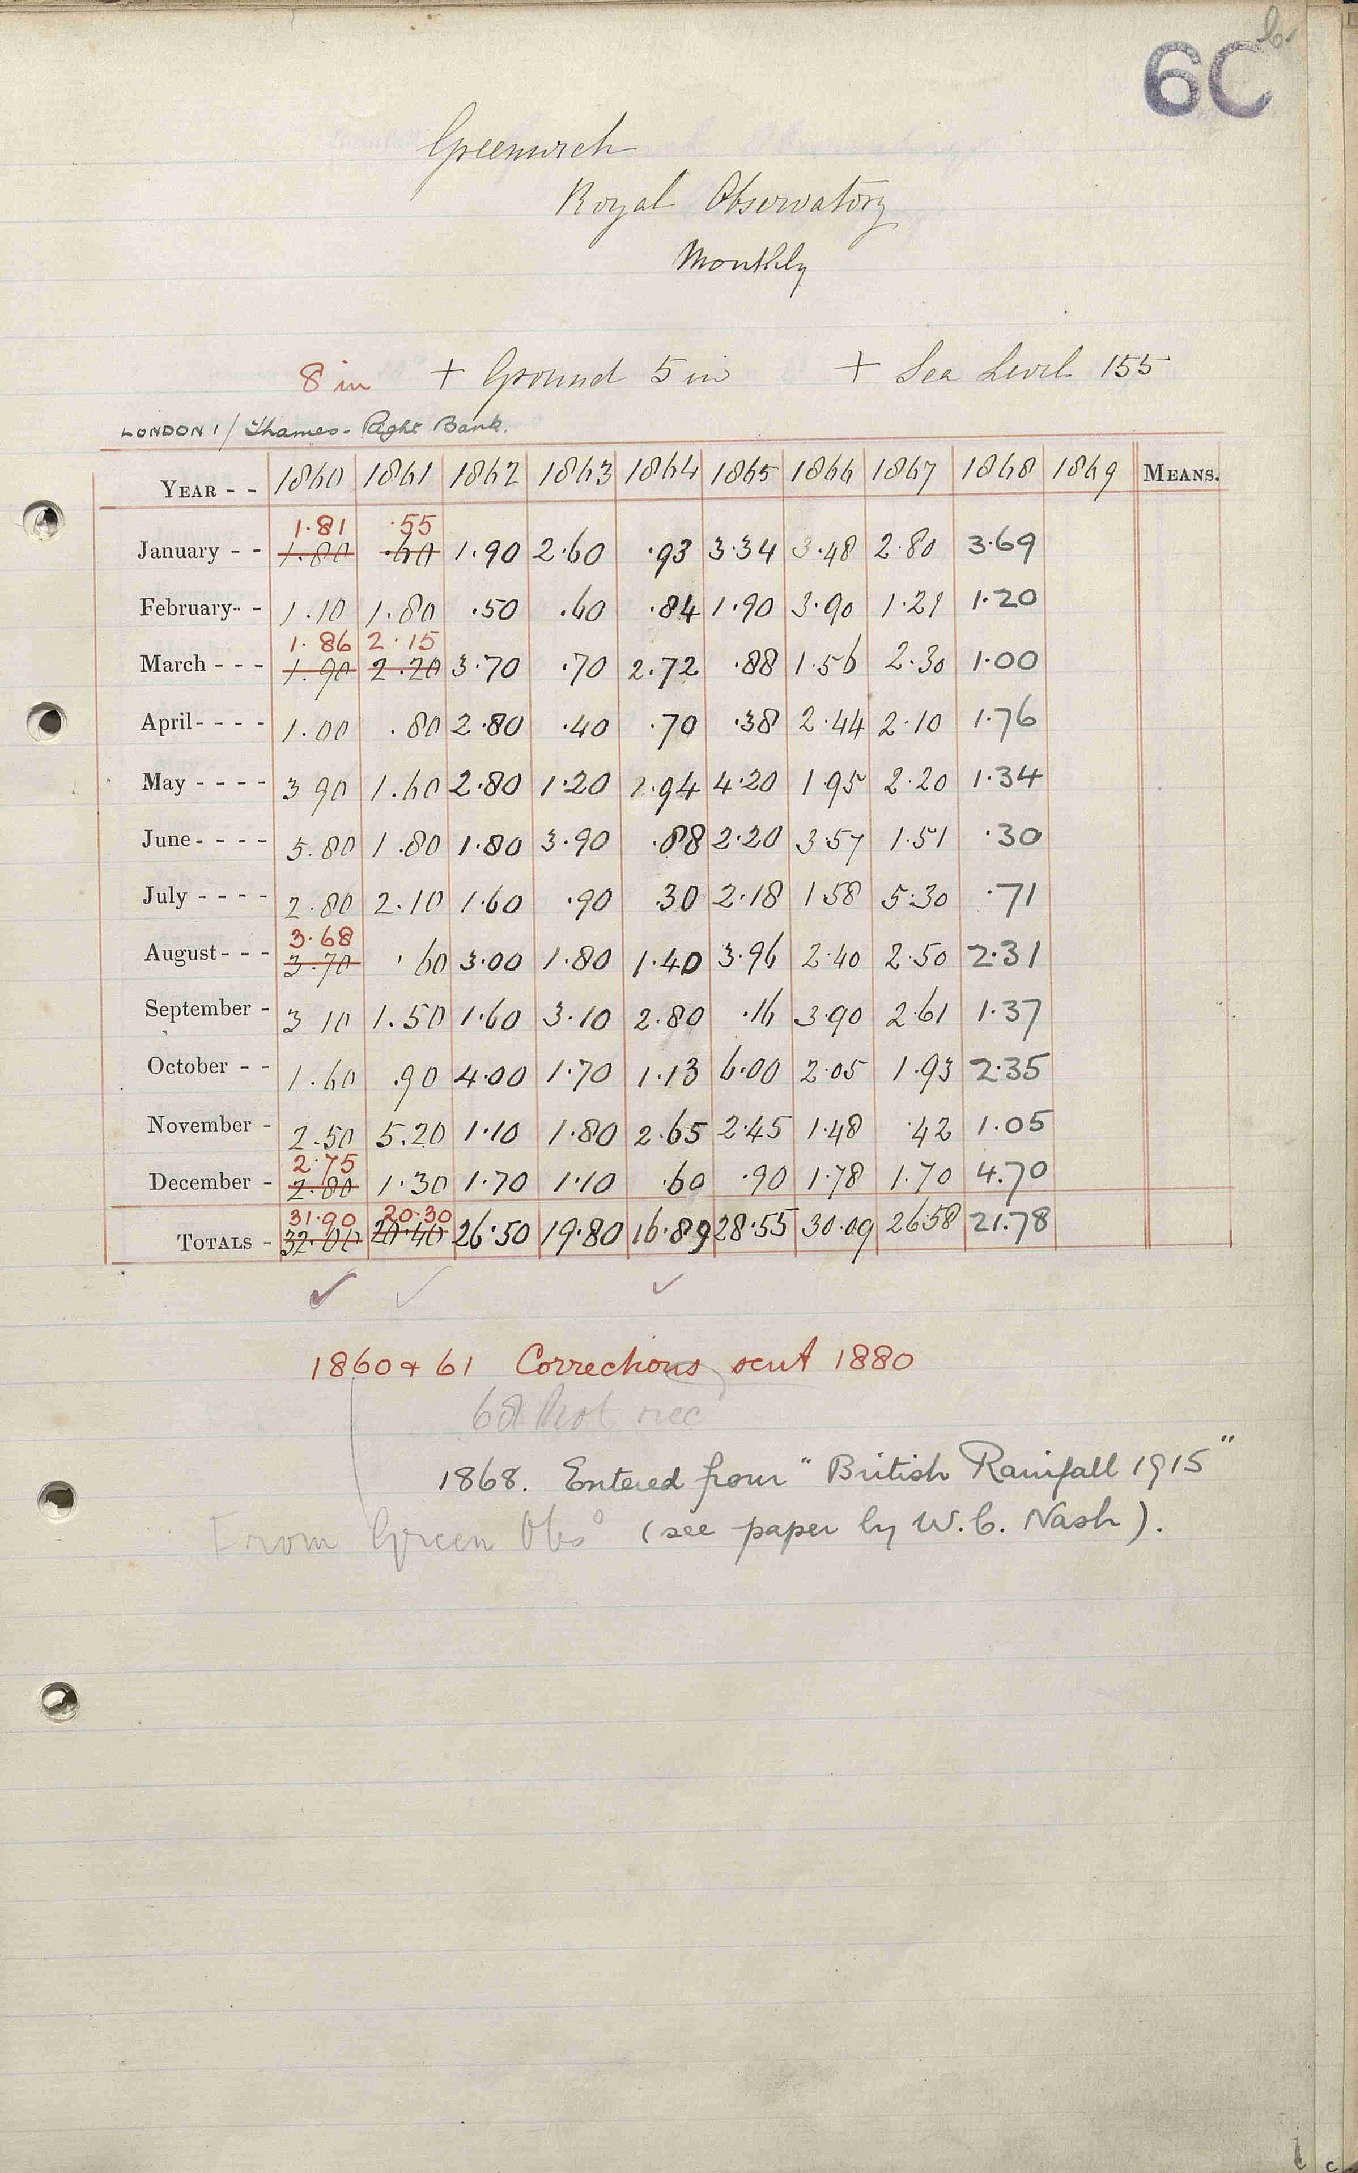 6C
Greenwich
Royal Observatory
Monthly
8 in + Ground 5 in + Sea Level 155
LONDON 1/ Thames - Right Bank.
YEAR - - 1860 1861 1862 1863 1864 1865 1866 1867 1868 1869 MEANS.
1.81 .55
January - - 1.80 .60 1.90 2.60 .93 3.34 3.48 2.80 3.69
February- - 1.10 1.80 .50 .60 .84 1.90 3.90 1.21 1.20
1.86 2.15
March - - - 1.90 2.20 3.70 .70 2.72 .88 1.56 2.30 1.00
April- - - - 1.00 .80 2.80 .40 .70 .38 2.44 2.10 1.76
May - - - - 3 90 1.60 2.80 1.20 1.94 4.20 1.95 2.20 1.34
June- - - - 5.80 1.80 1.80 3.90 .88 2.20 3.57 1.51 .30
July - - - - 2.80 2.10 1.60 .90 .30 2.18 1.58 5.30 .71
3.68
August- - - 3.70 .60 3.00 1.80 1.40 3.96 2.40 2.50 2.31
September - 3 10 1.50 1.60 3.10 2.80 .16 3.90 2.61 1.37
October - - 1.60 .90 4.00 1.70 1.13 6.00 2.05 1.93 2.35
November - 2.50 5.20 1.10 1.80 2.65 2.45 1.48 .42 1.05
2.75
December - 2.80 1.30 1.70 1.10 .60 .90 1.78 1.70 4.70
31.90 20.30
TOTALS - 32.00 20.40 26.50 19.80 16.89 28.55 30.09 26.58 21.78
1860 & 61 Corrections sent 1880
68 Not rec
1868. Entered from "British Rainfall 1915"
From Green Obs° (see paper by W.C. Nash).